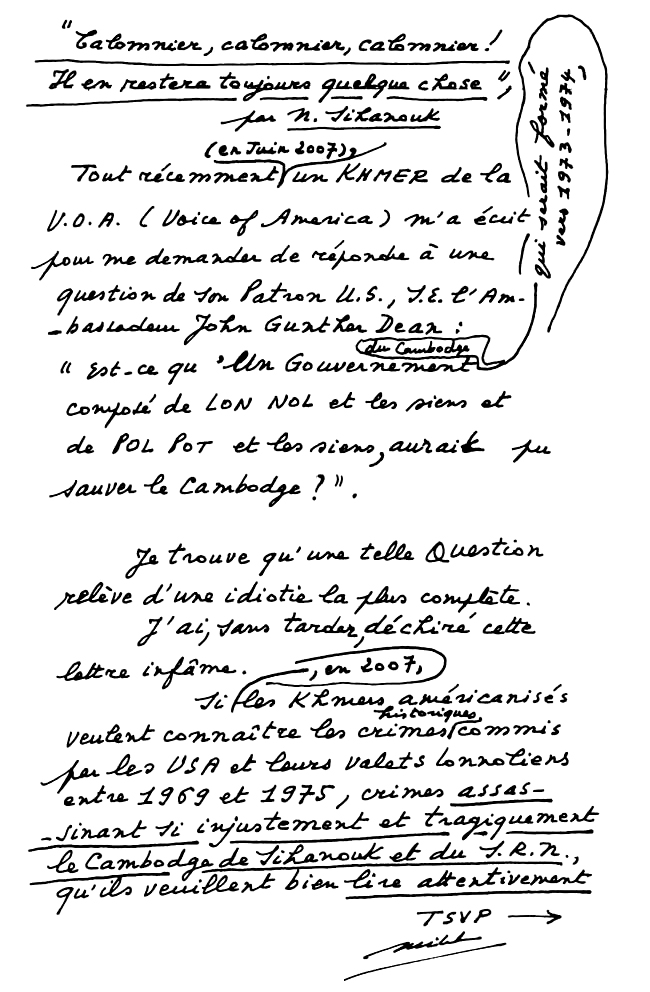 "Calomnier, calomnier, calomnier!
Il en restera toujours quelque chose",
par N. Sihanouk
(en Juin 2007),
Tout récemment un KHMER de la
V.O.A. (Voice of America) m'a écrit
pour me demander de répondre à une
question de son Patron U.S., S.E. l'Am-
-bassadeur John Gunther Dean :
du Cambodge
" Est-ce qu 'Un Gouvernement
qui serait formé
vers 1973-1974,
composé de LON NOL et les siens et
de POL POT et les siens, aurait pu
sauver le Cambodge ? ".
Je trouve qu'une telle Question
relève d'une idiotie la plus complète.
J'ai, sans tarder, déchiré cette
lettre infâme.
, en 2007,
Si les Khmers américanisés
historiques
veulent connaître les crimes commis
par les USA et leurs valets lonnoliens
entre 1969 et 1975, crimes assas-
-sinant si injustement et tragiquement
le Cambodge de Sihanouk et du S.R.N.,
qu'ils veuillent bien lire attentivement
TSVP →